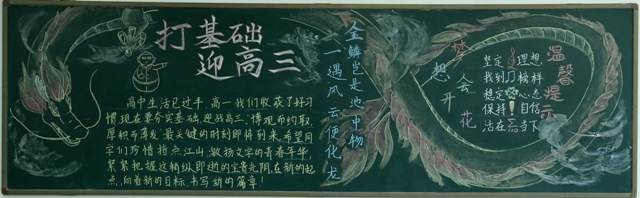 打基础
迎高三
高中生活已过半，高一我们收获了好习
惯，现在要夯实基础，迎战高三，“博观而约取，
厚积而薄发”最关键的时刻即将到来，希望同
学们珍惜指点江山，激扬文字的青春年华，
紧紧把握这稍纵即逝的宝贵光阴，在新的起
点，向着新的目标，书写新的篇章！
金鳞岂是池中物
一遇风云便化龙
梦想会开花
坚定理想
我到榜样
稳定心态
保持自信
活在当下
温馨提示